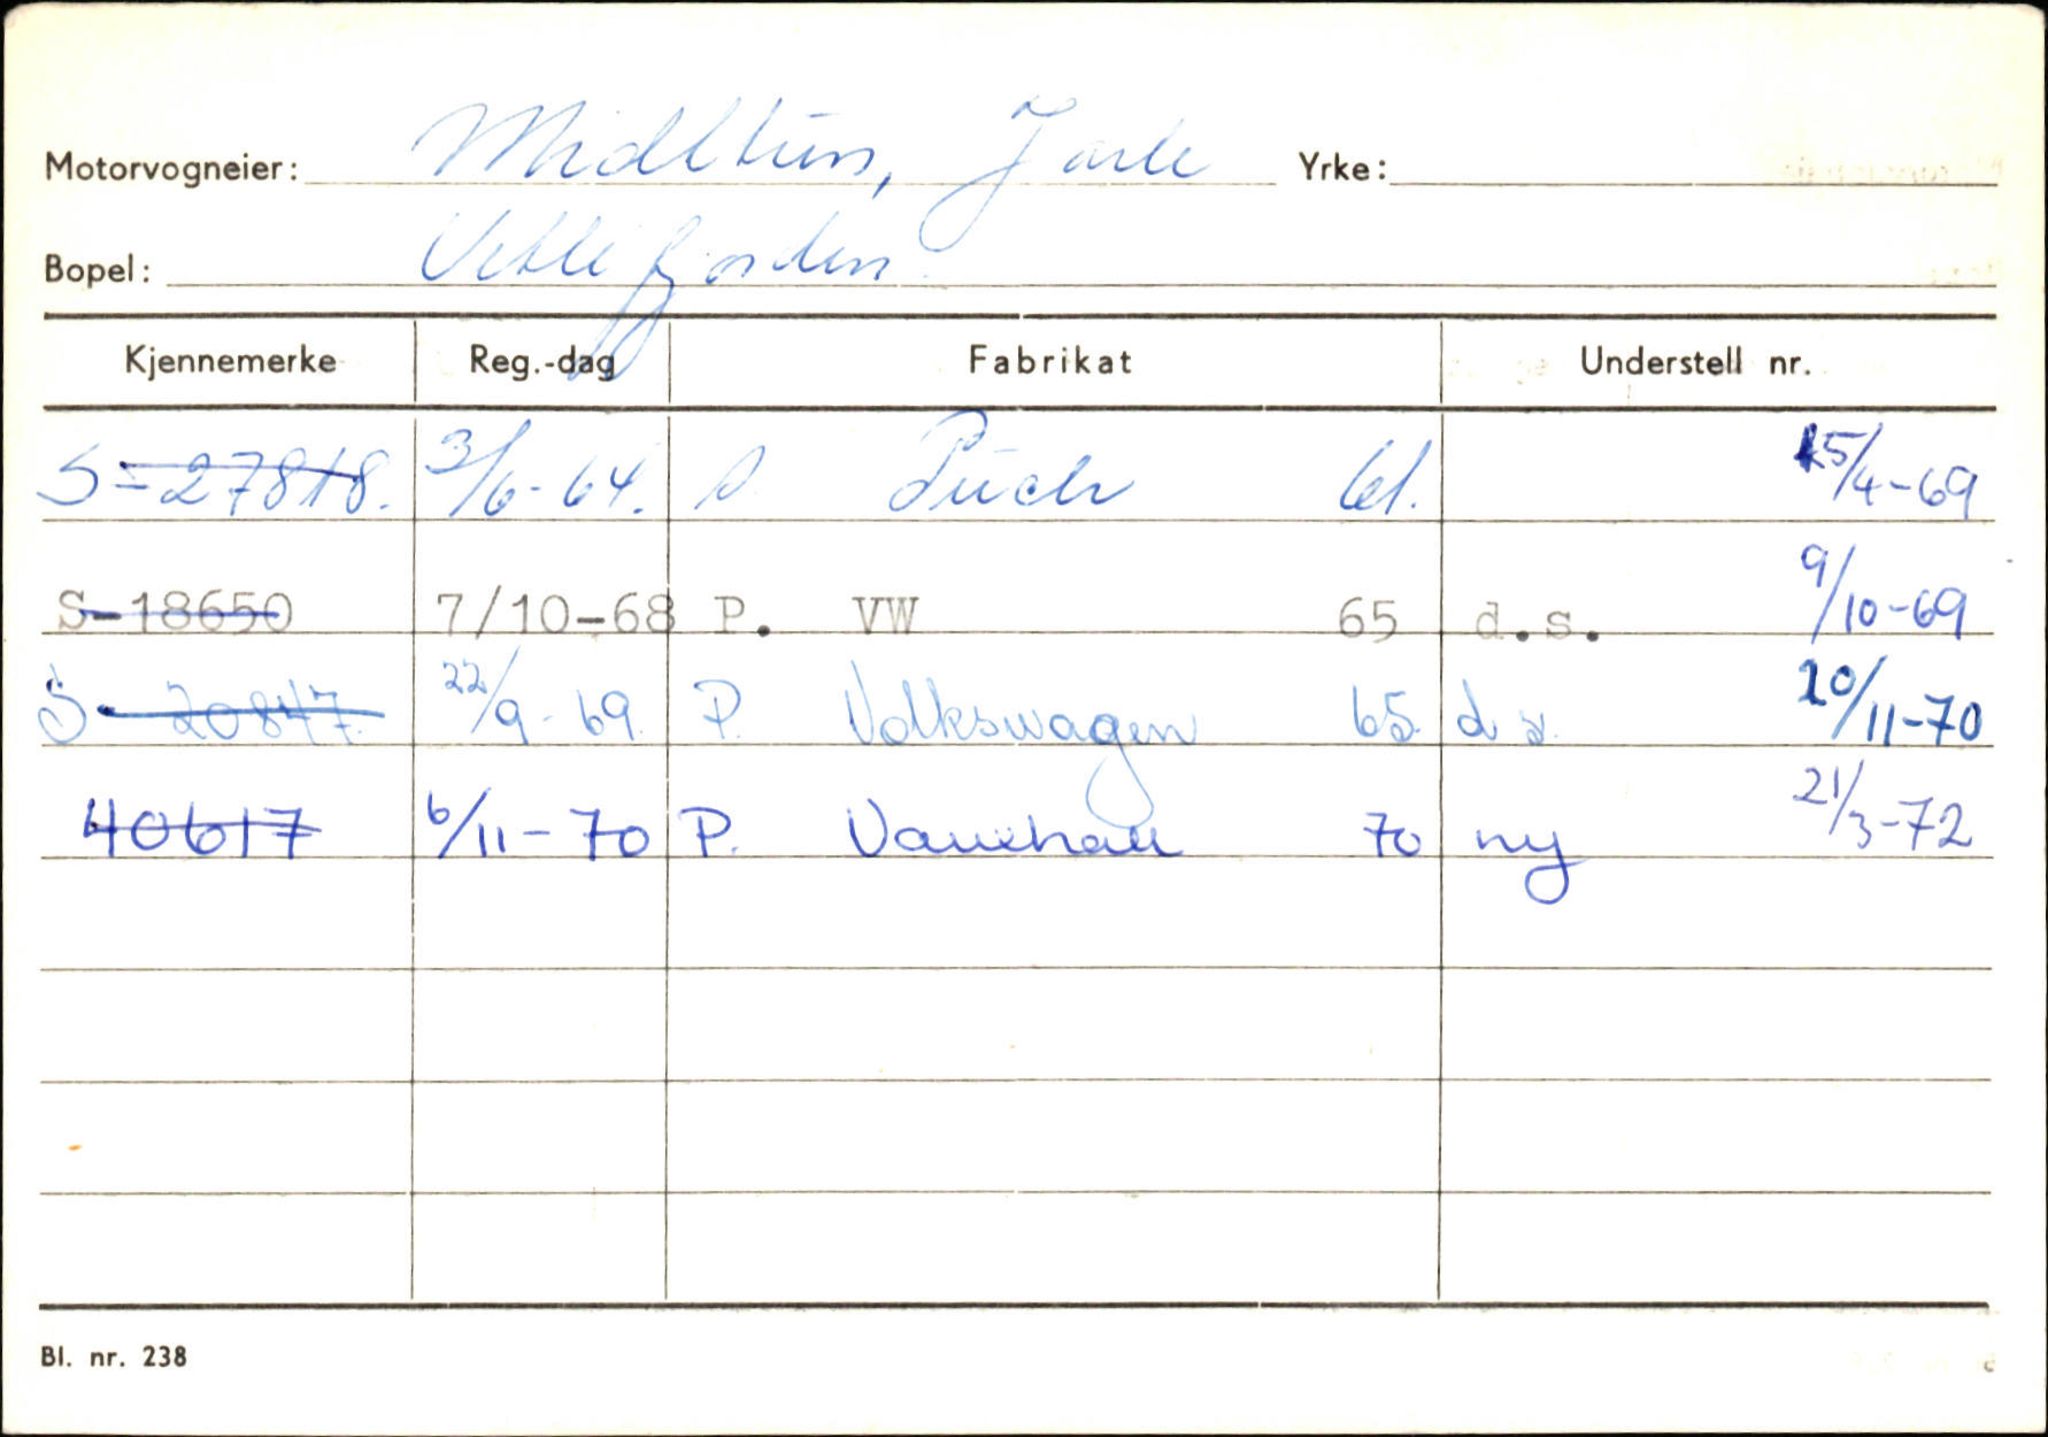 Motorvogneier: Midttun, Jarle Yrke:
Bopel: Vetlefjorden
Kjennemerke Reg.-dag Fabrikat Understell nr.
S-27818. 3/6-64. Puch 61. 15/4-69
S-18650 7/10-68 P. VW 65 d.s. 9/10-69
S-20847. 22/9-69. P. Volkswagen 65. d.s. 20/11-70
40617 6/11-70 P. Vauxhall 70 ny 21/3-72
Bl. nr. 238